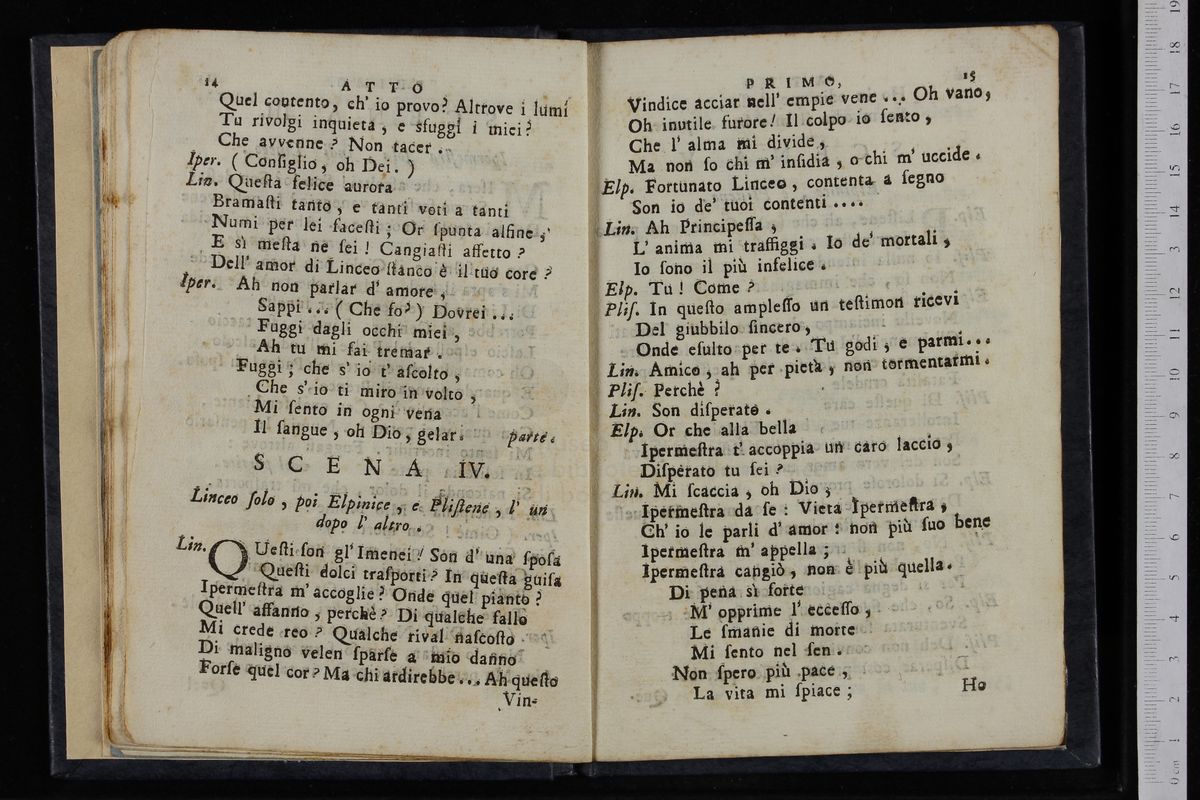 14 ATTO
Quel contento, ch' io provo? Altrove i lumi
Tu rivolgi inquieta, e sfuggi i miei?
Che avvenne? Non tacer.
Iper. (Consiglio, oh Dei.)
Lin. Questa felice aurora
Bramasti tanto, e tanti voti a tanti
Numi per lei facesti; Or spunta alfine,
E sì mesta ne sei! Cangiasti affetto?
Dell' amor di Linceo stanco è il tuo core?
Iper. Ah non parlar d' amore,
Sappi... (Che fo?) Dovrei...
Fuggi dagli occhi miei,
Ah tu mi fai tremar.
Fuggi; che s' io t' ascolto,
Che s' io ti miro in volto,
Mi sento in ogni vena
Il sangue, oh Dio, gelar. parte.
SCENA IV.
Linceo solo, poi Elpinice, e Plistene, l' un
dopo l' altro.
Lin. QUesti son gl' Imenei! Son d' una sposa
Questi dolci trasporti? In questa guisa
Ipermestra m' accoglie? Onde quel pianto?
Quell' affanno, perchè? Di qualche fallo
Mi crede reo? Qualche rival nascosto
Di maligno velen sparse a mio danno
Forse quel cor? Ma chi ardirebbe... Ah questo
Vin-
PRIMO, 15
Vindice acciar nell' empie vene... Oh vano,
Oh inutile furore! Il colpo io sento,
Che l' alma mi divide,
Ma non so chi m' insidia, o chi m' uccide.
Elp. Fortunato Linceo, contenta a segno
Son io de' tuoi contenti....
Lin. Ah Principessa,
L' anima mi traffiggi. Io de' mortali,
Io sono il più infelice.
Elp. Tu! Come?
Plis. In questo amplesso un testimon ricevi
Del giubbilo sincero,
Onde esulto per te. Tu godi, e parmi...
Lin. Amico, ah per pietà, non tormentarmi.
Plis. Perchè?
Lin. Son disperato.
Elp. Or che alla bella
Ipermestra t' accoppia un caro laccio,
Disperato tu sei?
Lin. Mi scaccia, oh Dio,
Ipermestra da se: Vieta Ipermestra,
Ch' io le parli d' amor: non più suo bene
Ipermestra m' appella;
Ipermestra cangiò, non è più quella.
Di pena sì forte
M' opprime l' eccesso,
Le smanie di morte
Mi sento nel sen.
Non spero più pace,
La vita mi spiace;
Ho